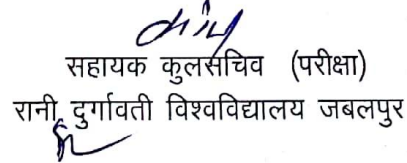 सहायक कुलसचिव (परीक्षा)
रानी दुर्गावती विश्वविद्यालय जबलपुर